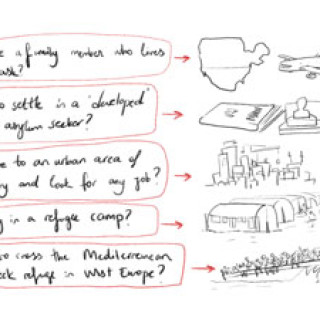 a family member who lives
ask?
to settle in a 'developed'
asylum seeker?
to an urban area of
y and look for any job?
in a refugee camp?
cross the Mediterranean
ek refuge in West Europe?